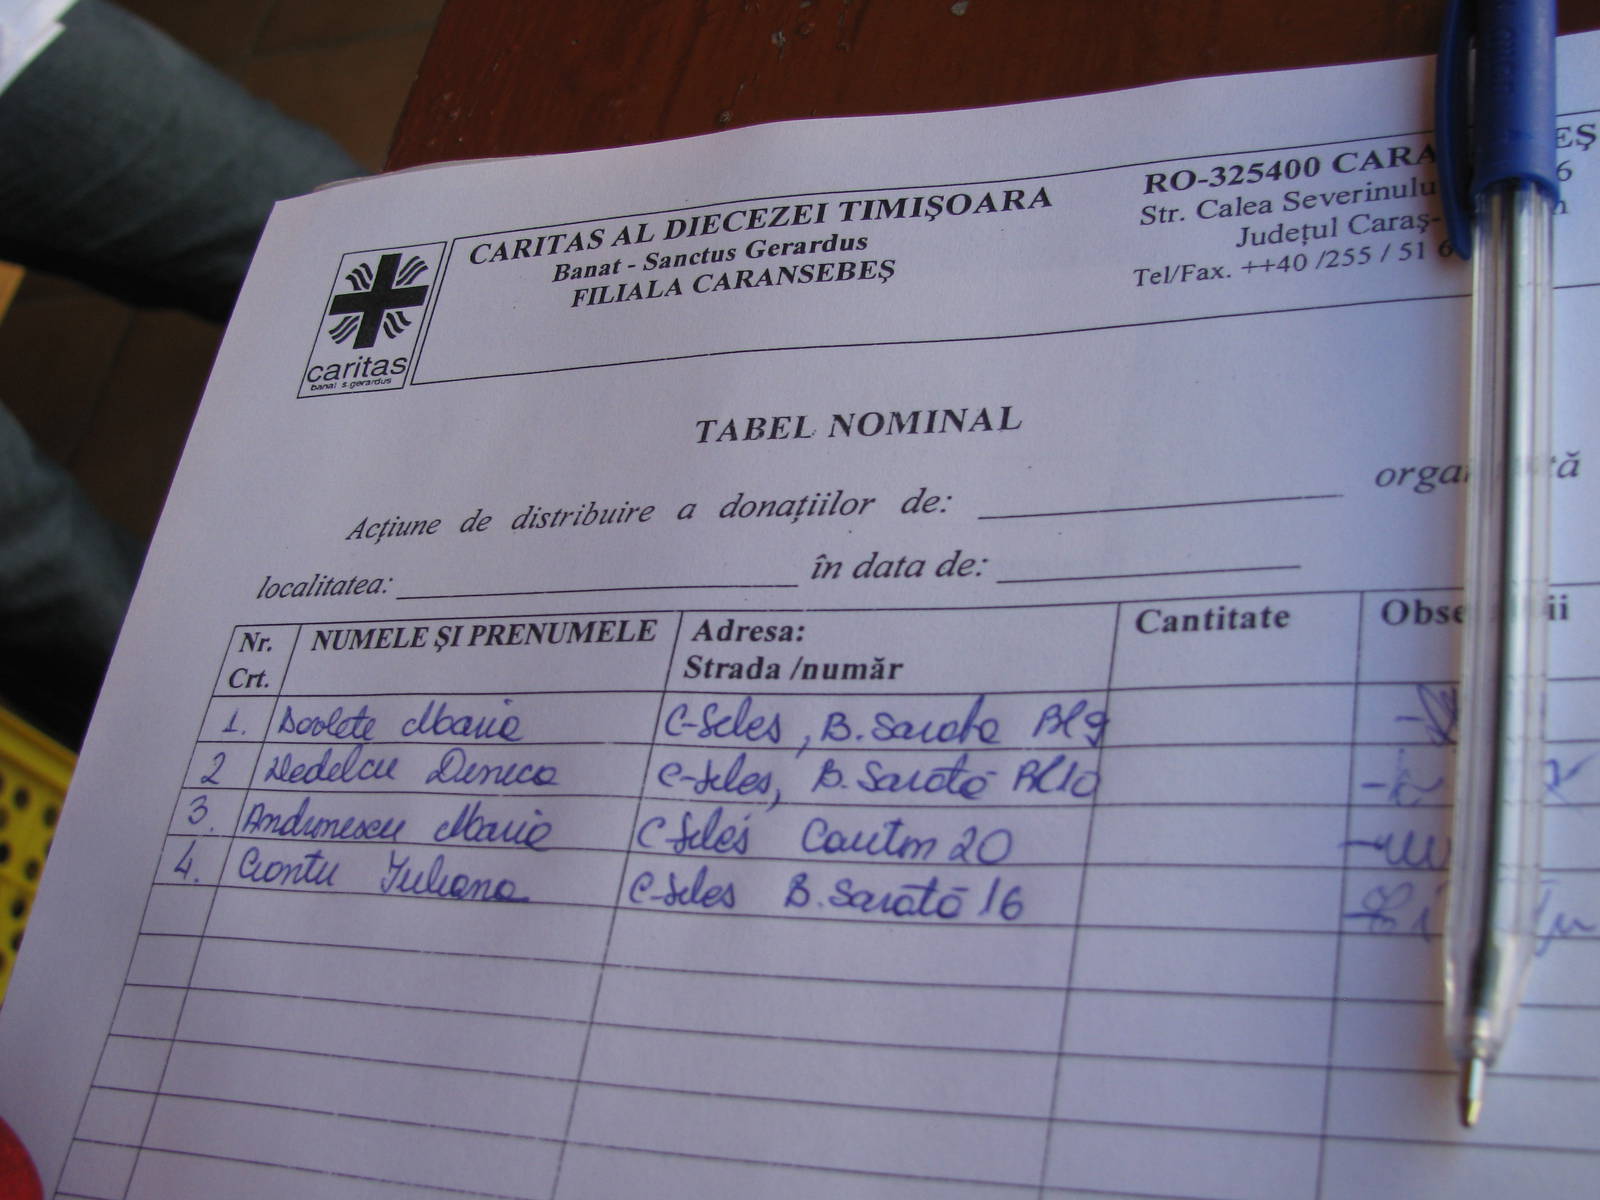 CARITAS AL DIECEZEI TIMIŞOARA
Banat - Sanctus Gerardus
FILIALA CARANSEBEŞ
caritas
banat s.gerardus
RO-325400 CARA EŞ
Str. Calea Severinulu 6
Judeţul Caraş-
Tel/Fax. ++40 /255 / 51 6
TABEL NOMINAL
Acţiune de distribuire a donaţiilor de: orga
localitatea: în data de:
Nr. Crt. NUMELE ŞI PRENUMELE Adresa: Strada /număr Cantitate Obse ii
1. Dovlete Maria C-Seles, B. Sarata Bl 9
2 Nedelcu C-Seles, B. Sarată Bl 10
3. Andronescu Maria C Seles 20
4. Ciontu Iuliana C-Seles B. Sarată 16